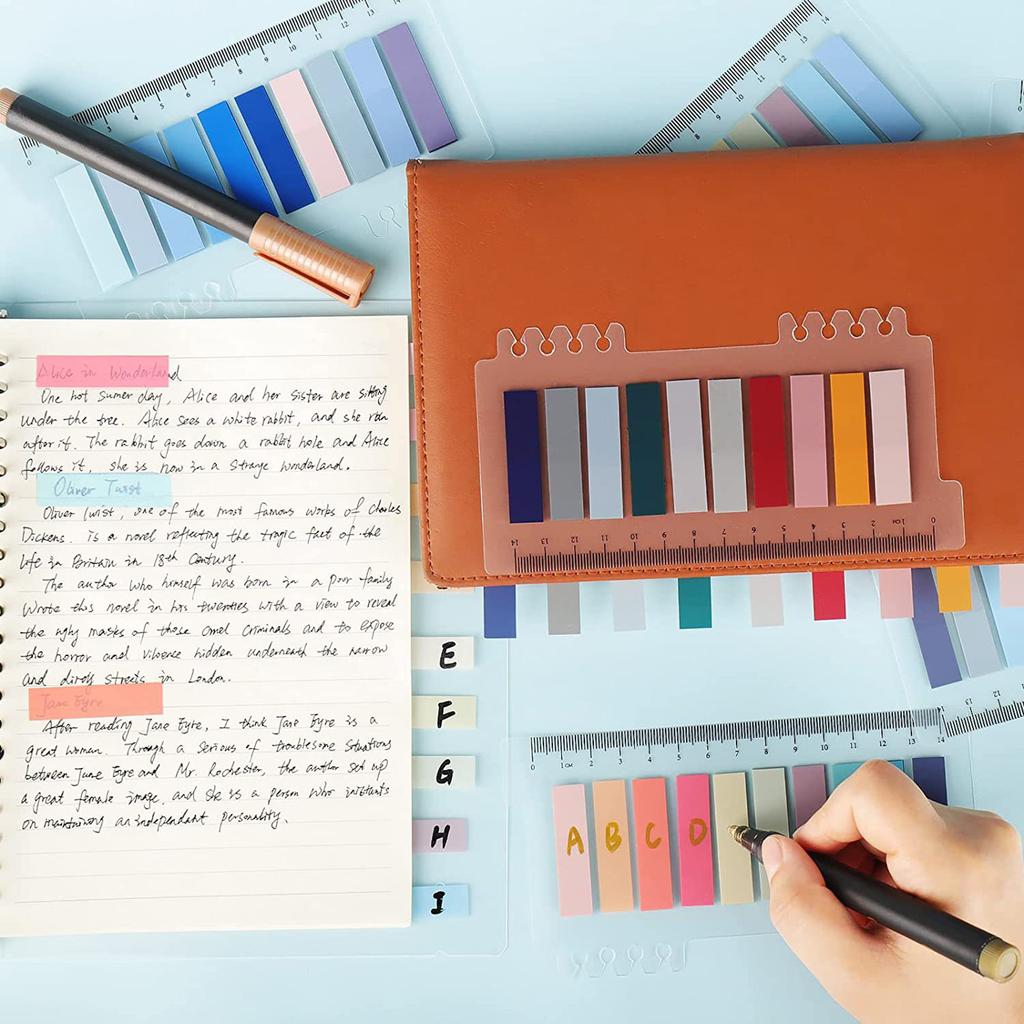 Alice in Wonderland
One hot sumer day, Alice and her sister are sitting
under the tree. Alice sees a white rabbit, and she run
after it. The rabbit goes down a rabbit hole and Alice
follows it, she is now in a strange wonderland.
Oliver Twist
Oliver Twist, one of the most famous works of Charles
Dickens. is a novel reflecting the tragic fact of the
life in Britain in 18th Century.
The author who himself was born in a poor family
Wrote this novel in his twenties with a view to reveal
the ugly masks of those cruel criminals and to expose
the horror and violence hidden underneath the narrow
and dirty streets in London.
Jane Eyre
After reading Jane Eyre, I think Jane Eyre is a
great woman. Through a serious of troublesome situations
between Jane Eyre and Mr. Rochester, the author set up
a great female image, and she is a person who insistants
on maintaining an independant personality.
E
F
G
H
I
14 13 12 11 10 9 8 7 6 5 4 3 2 1cm 0
0 1cm 2 3 4 5 6 7 8 9 10 11 12 13 14
A B C D